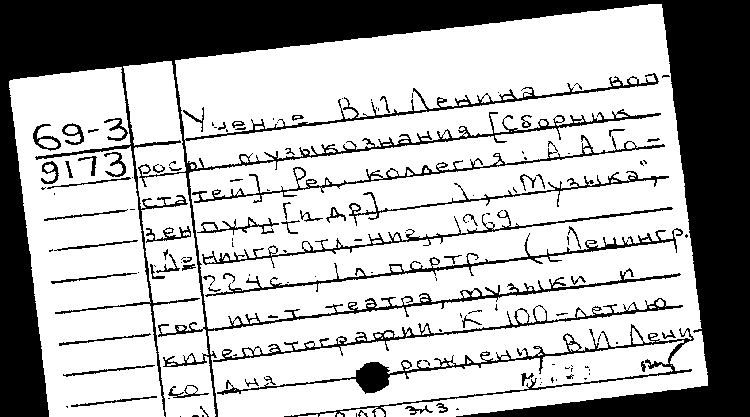 69-3
9173
Учение В.И. Ленина и воп-
росы музыкознания. [Сборник
статей]. [Ред. коллегия: А.А. Го-
зенпуд, [и др.]. Л., "Музыка",
[Ленингр. отд-ние], 1969.
224 с.; 1 л. портр. ([Ленингр.
гос. ин-т театра, музыки и
кинематографии. К 100-летию
со дня рождения В.И. Лени-
экз.